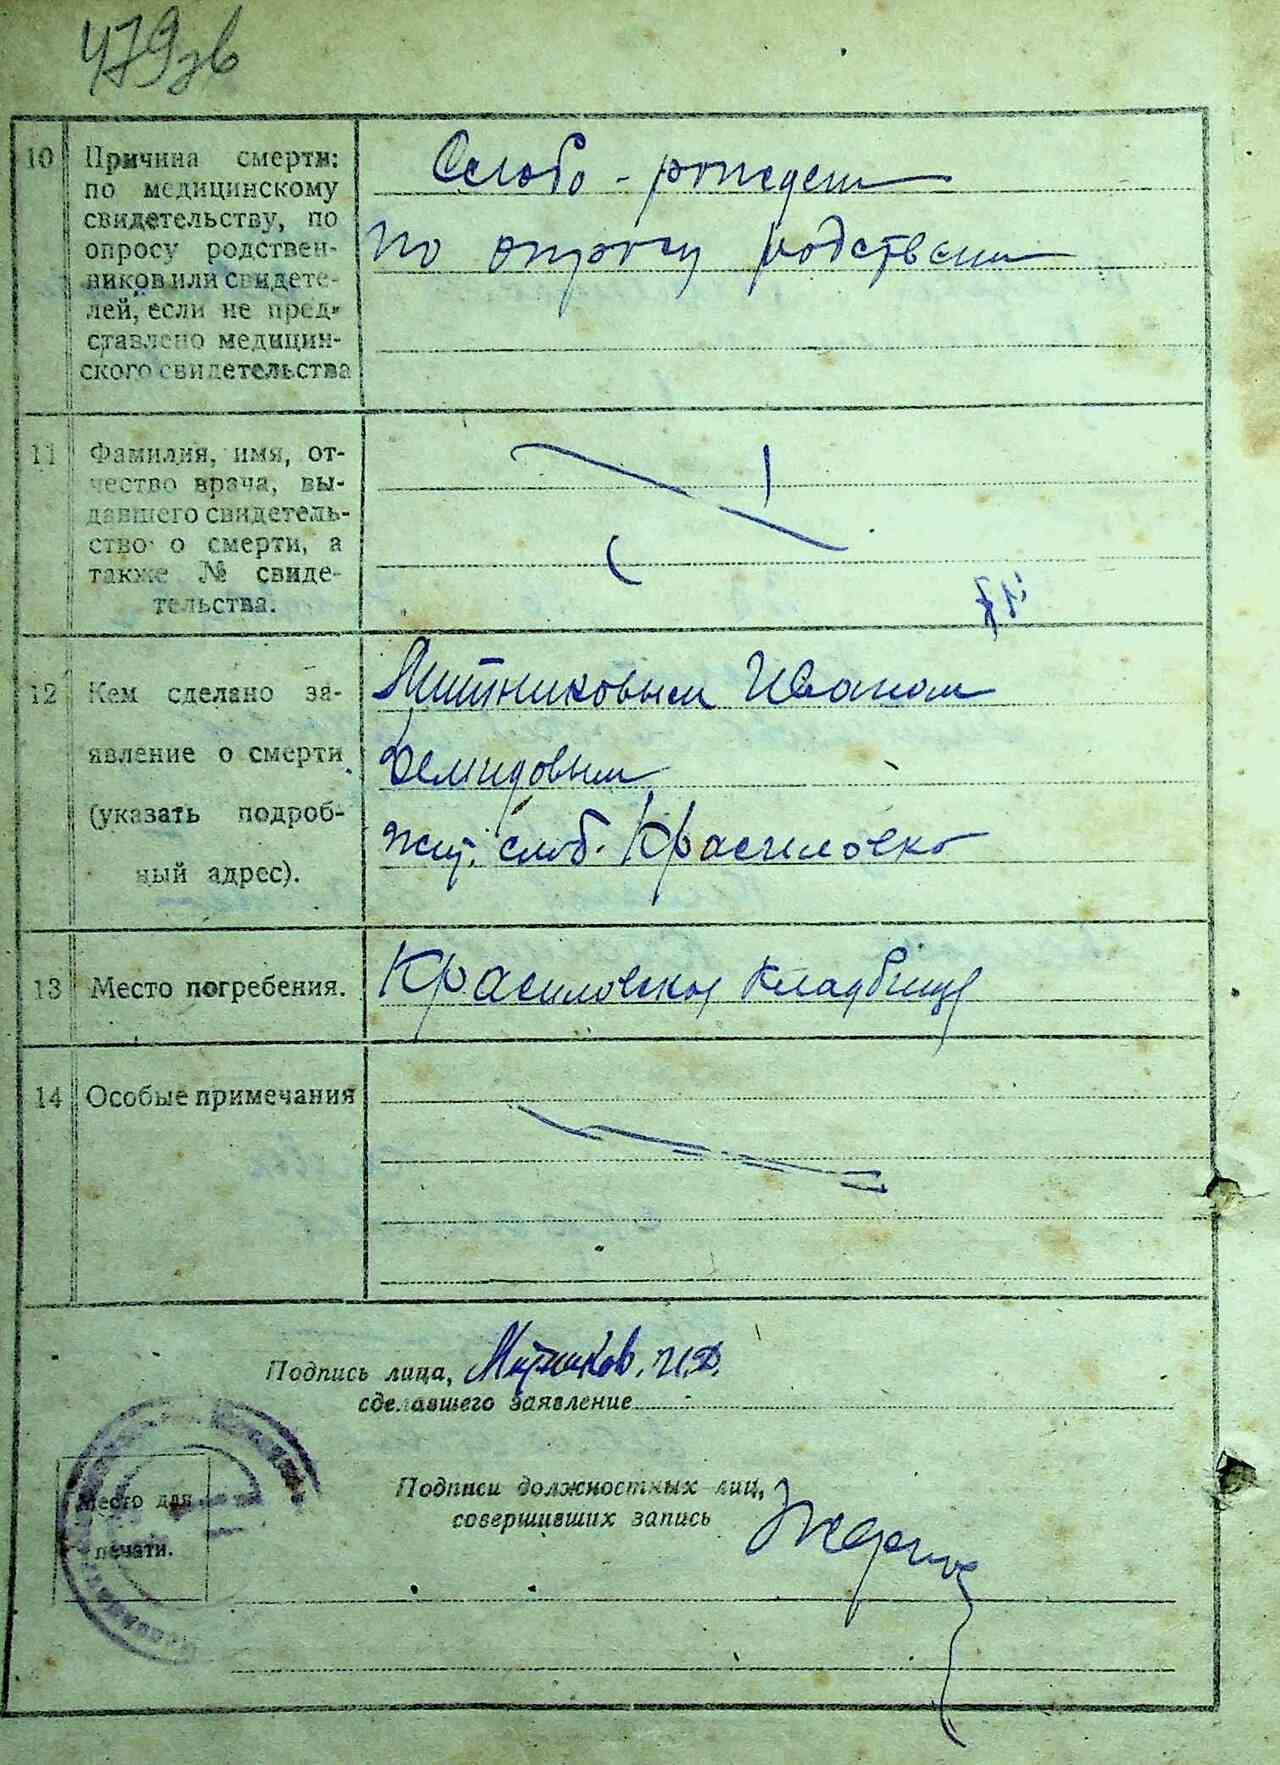 479зв
10 Причина смерти:
по медицинскому
свидетельству, по
опросу родствен-
ников или свидете-
лей, если не пред-
ставлено медицин-
ского свидетельства
Слабо-рожден
по опросу родствен
11 Фамилия, имя, от-
чество врача, вы-
давшего свидетель-
ство о смерти, а
также № свиде-
тельства.
12 Кем сделано за-
явление о смерти
(указать подроб-
ный адрес).
Митниковым Иваном
Демидовым
жит. слоб. Красиловка
13 Место погребения.
Красиловское кладбище
14 Особые примечания
Подпись лица, Митников. И.Д.
сделавшего заявление
Подписи должностных лиц,
совершивших запись
Место для
печати.